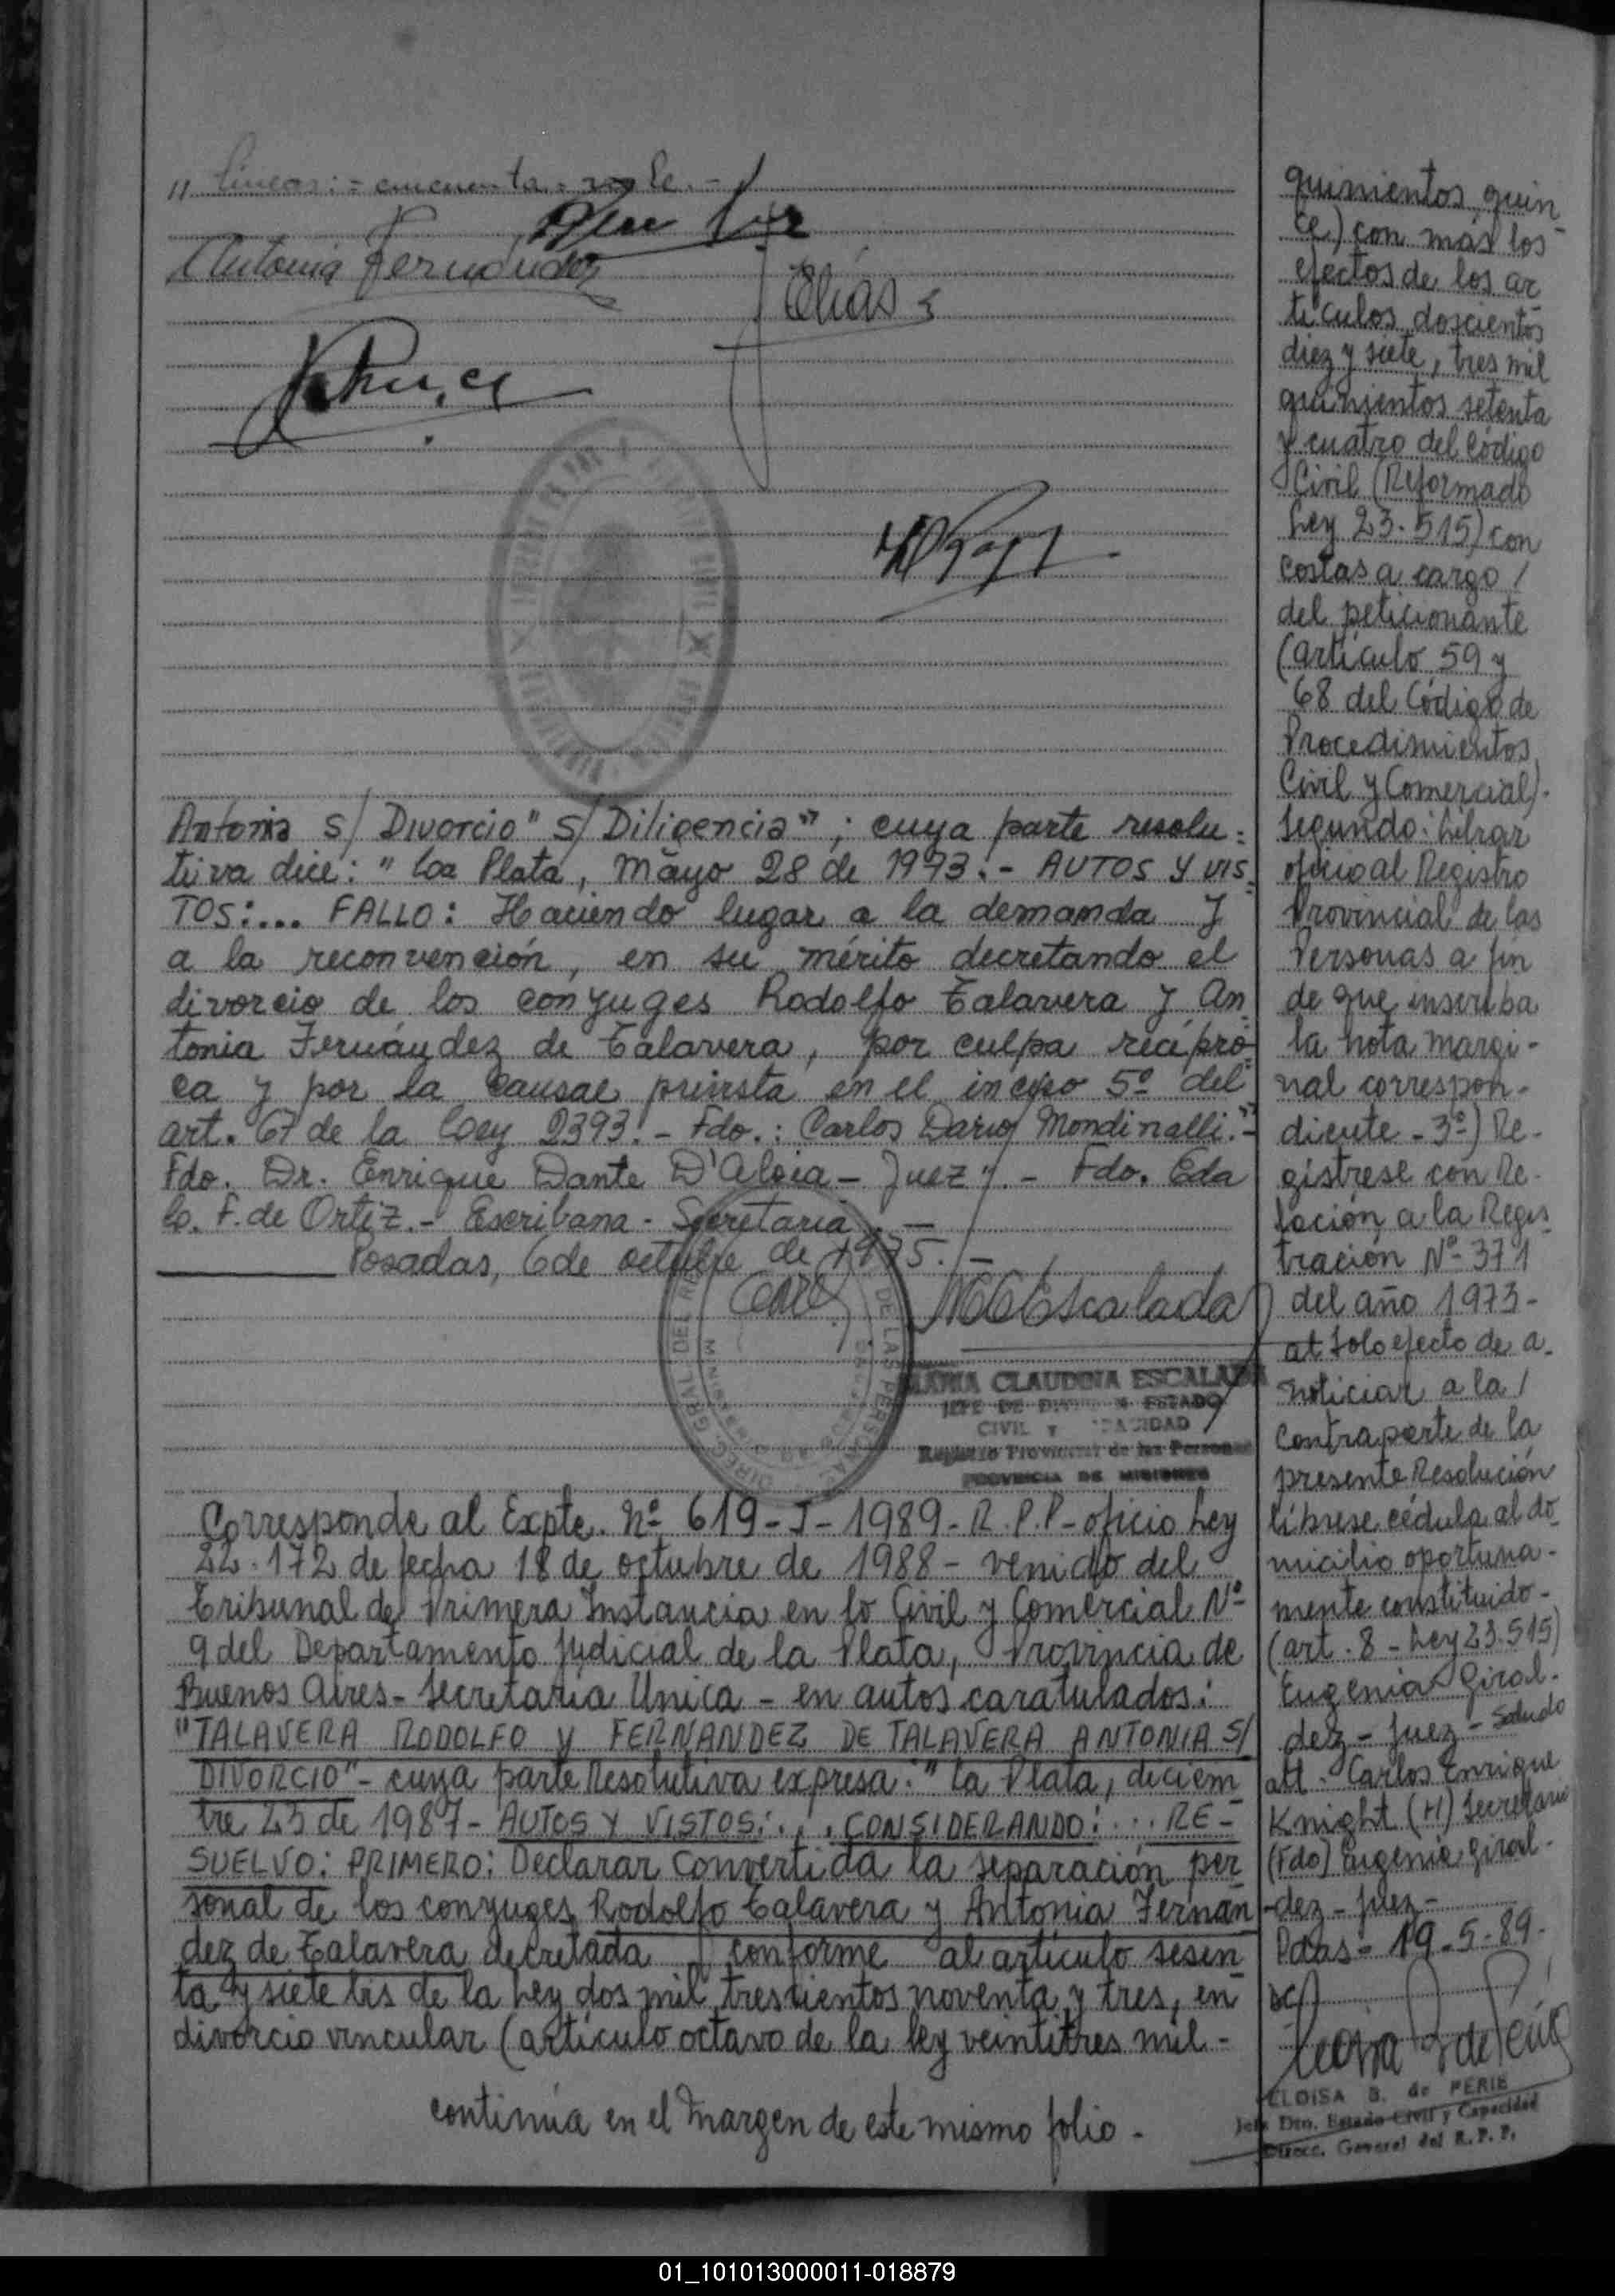 " lineas: = cincuenta = vale. -
Antonia Fernandez
Elías
Antonia S/ Divorcio" S/ Diligencia"; cuya parte resolu=
tiva dice: " La Plata, Mayo 28 de 1973.- AUTOS Y VIS=
TOS:... FALLO: Haciendo lugar a la demanda y
a la reconvención, en su mérito decretando el
divorcio de los conyuges Rodolfo Talavera y An=
tonia Fernández de Talavera, por culpa recípro=
ca y por la causal prevista en el inciso 5º del
art. 67 de la Ley 2393.- Fdo.: Carlos Dario Mondinalli."-
Fdo. Dr. Enrique Dante D'Aloia - Juez". - Fdo. Eda
L. F. de Ortiz.- Escribana - Secretaria. -
Posadas, 6 de octubre de 1975. -
MCEscalada
MARIA CLAUDINA ESCALADA
JEFE DE ESTADO
CIVIL Y CAPACIDAD
Registro Provincial de las Personas
PROVINCIA DE MISIONES
Corresponde al Expte. Nº 619-J-1989-R.P.P-oficio Ley
22.172 de fecha 18 de octubre de 1988 - venido del
Tribunal de Primera Instancia en lo Civil y Comercial Nº
9 del Departamento Judicial de la Plata, Provincia de
Buenos Aires - Secretaría Unica - en autos caratulados:
"TALAVERA RODOLFO Y FERNANDEZ DE TALAVERA ANTONIA S/
DIVORCIO" - cuya parte Resolutiva expresa: " La Plata, diciem
bre 23 de 1987 - AUTOS Y VISTOS:... CONSIDERANDO: ... RE-
SUELVO: PRIMERO: Declarar convertida la separación per
sonal de los conyuges Rodolfo Talavera y Antonia Fernán
dez de Talavera decretada conforme al artículo sesen
ta y siete bis de la Ley dos mil trescientos noventa y tres, en
divorcio vincular (artículo octavo de la ley veintitres mil -
continúa en el margen de este mismo folio -
quinientos quin
ce) con más los
efectos de los ar
tículos doscientos
diez y siete, tres mil
quinientos setenta
y cuatro del Código
Civil (Reformado
Ley 23.515) con
costas a cargo /
del peticionante
(artículo 59 y
68 del Código de
Procedimientos
Civil y Comercial).
Segundo: Librar
oficio al Registro
Provincial de las
Personas a fin
de que inscriba
la nota margi-
nal correspon-
diente - 3º) Re-
gístrese con Re-
lación a la Regis
tración Nº 371
del año 1973 -
al solo efecto de a-
noticiar a la /
contraparte de la
presente Resolución
líbrese cédula al do
micilio oportuna-
mente constituido -
(art. 8 - Ley 23.515)
Eugenia Giral-
dez - Juez - Saludo
att. Carlos Enrique
Knight (H) Secretario
(Fdo) Eugenia Giral-
-dez - Juez -
Pdas - 19-5-89-
ELOISA B. de PERIE
Jefa Dto. Estado Civil y Capacidad
Direcc. General del R.P.P.
01_101013000011-018879